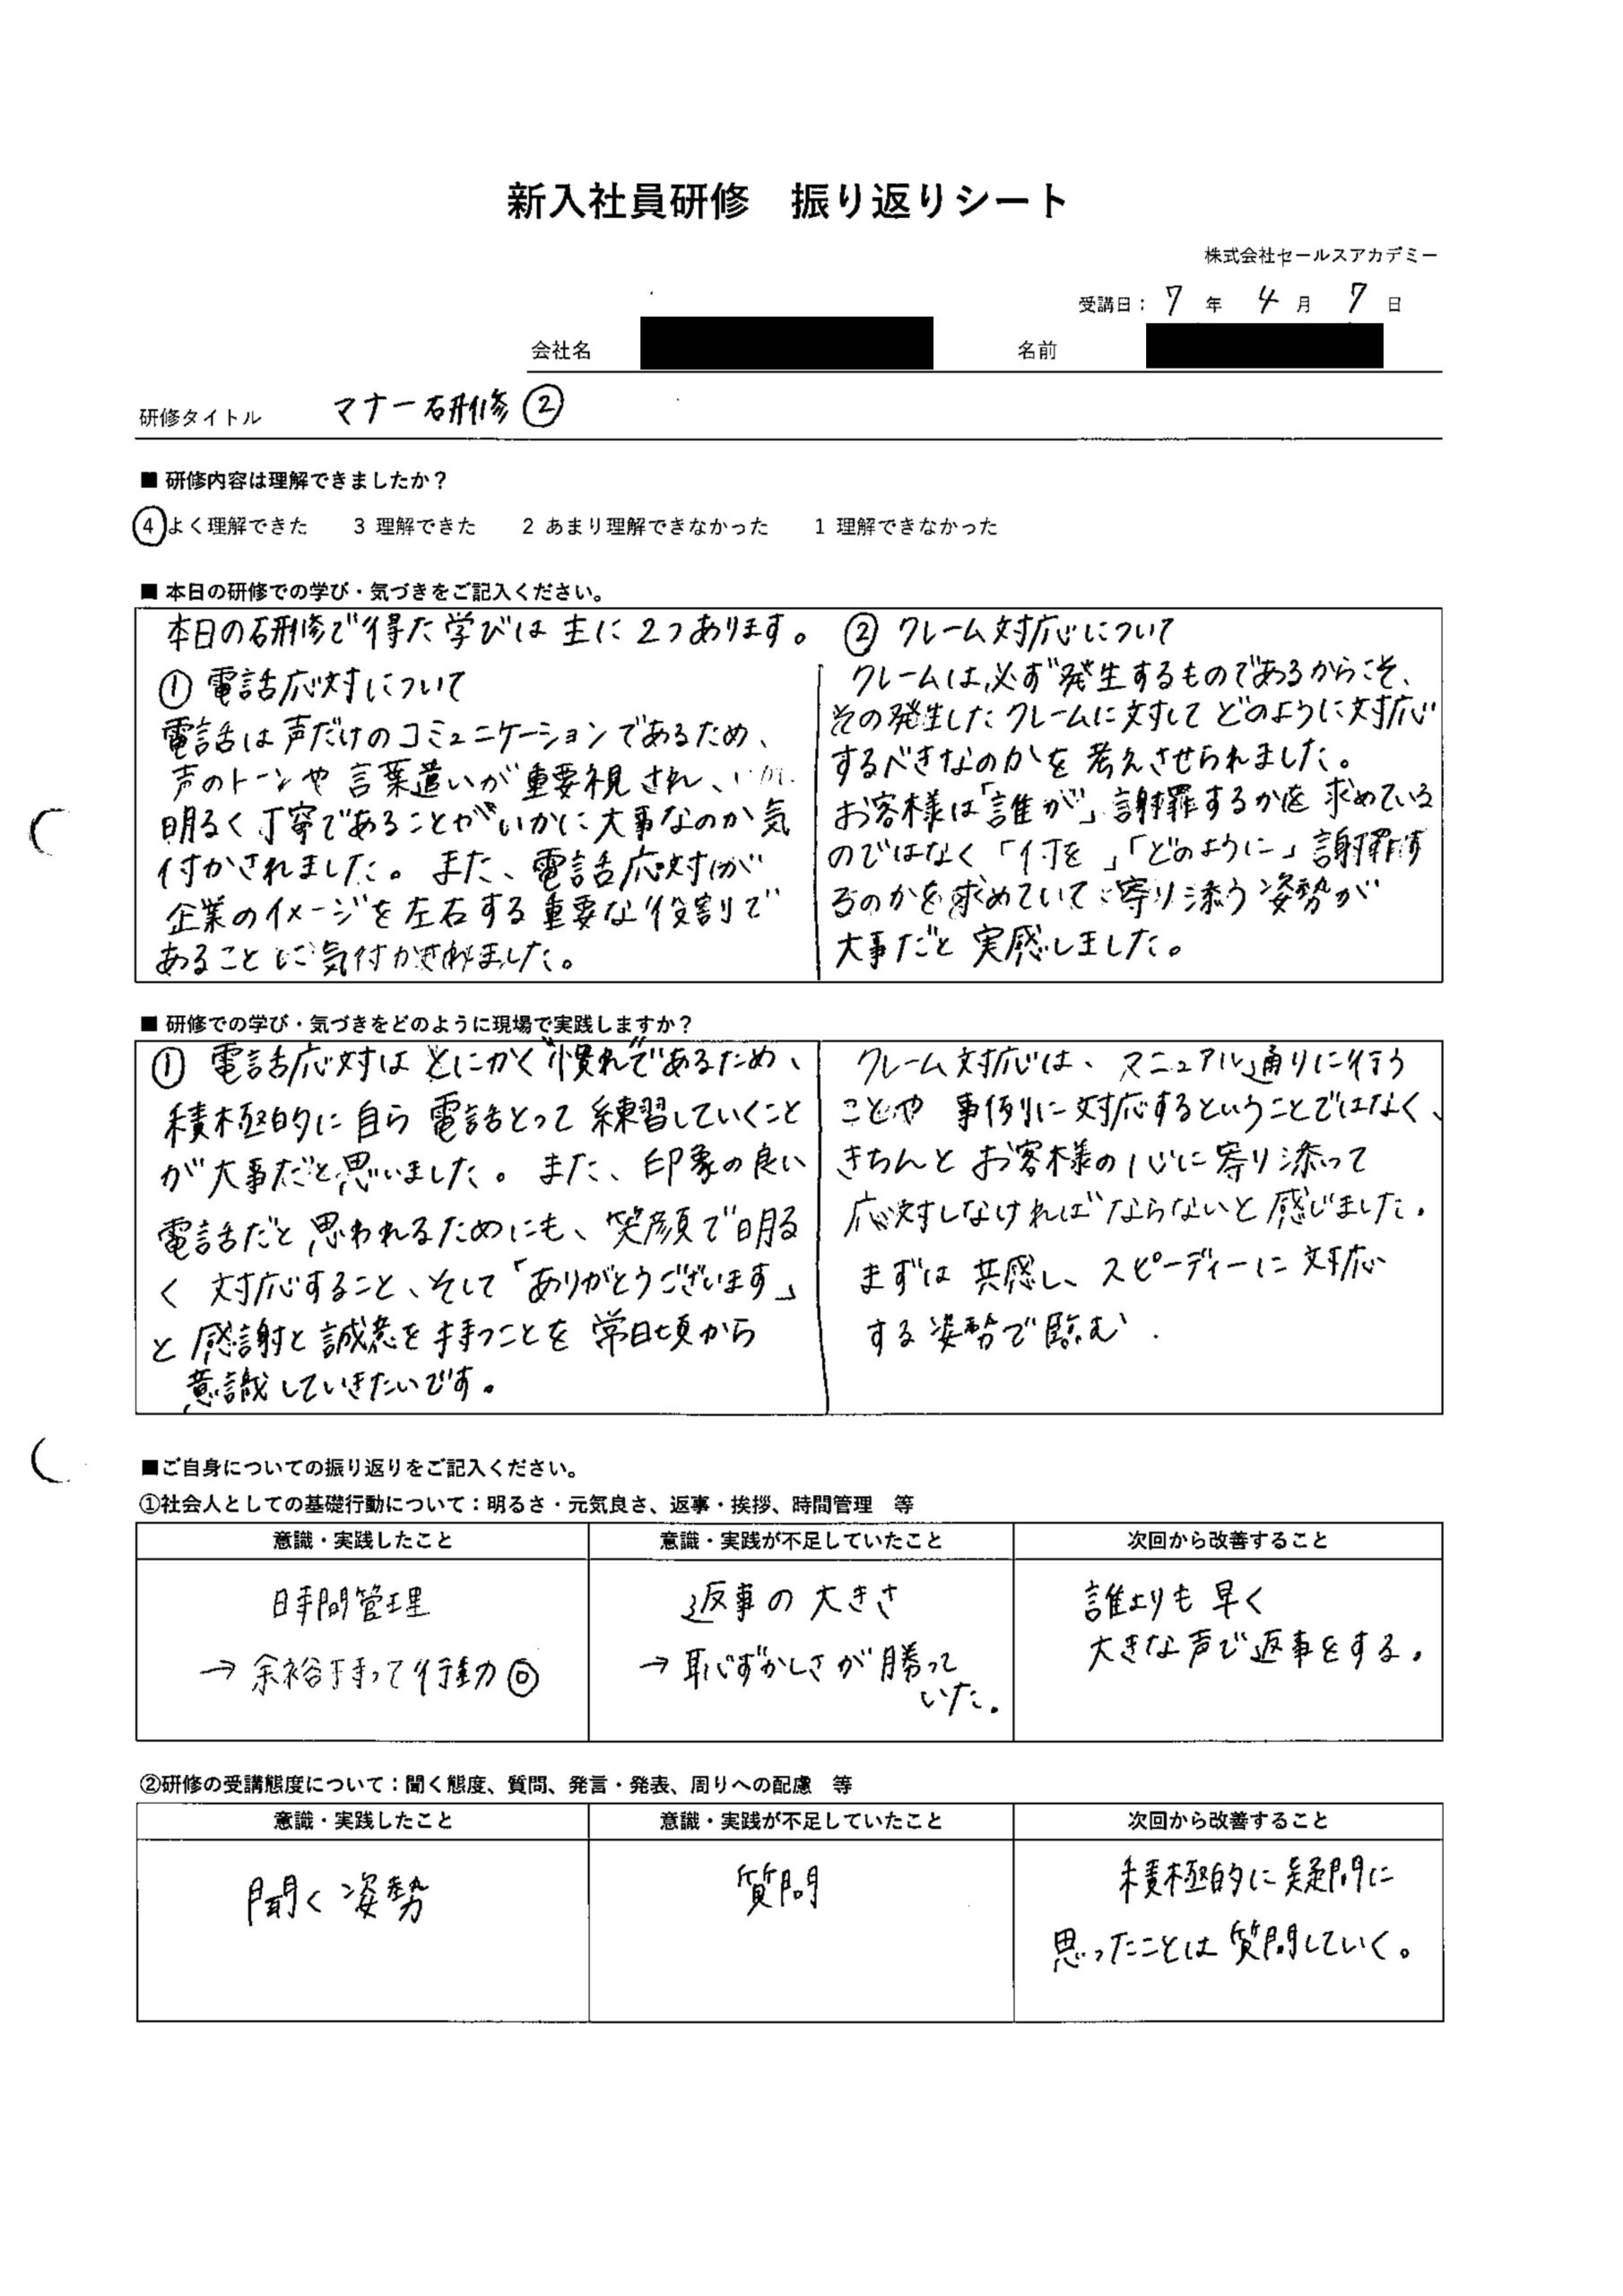 新入社員研修　振り返りシート
株式会社セールスアカデミー
受講日： 7 年 4 月 7 日
会社名 名前
研修タイトル マナー研修②
■ 研修内容は理解できましたか？
④ よく理解できた 3 理解できた 2 あまり理解できなかった 1 理解できなかった
■ 本日の研修での学び・気づきをご記入ください。
本日の研修で得た学びは主に2つあります。
① 電話応対について
電話は声だけのコミュニケーションであるため、
声のトーンや言葉遣いが重要視され、
明るく丁寧であることがいかに大事なのか気
付かされました。また、電話応対が
企業のイメージを左右する重要な役割で
あることに気付かされました。
② クレーム対応について
クレームは、必ず発生するものであるからこそ、
その発生したクレームに対してどのように対応
するべきなのかを考えさせられました。
お客様は「誰が」謝罪するかを求めている
のではなく「何を」「どのように」謝罪す
るのかを求めていて寄り添う姿勢が
大事だと実感しました。
■ 研修での学び・気づきをどのように現場で実践しますか？
① 電話応対はとにかく"慣れ"であるため、
積極的に自ら電話とって練習していくこと
が大事だと思いました。また、印象の良い
電話だと思われるためにも、笑顔で明る
く対応すること、そして「ありがとうございます」
と感謝と誠意を持つことを常日頃から
意識していきたいです。
クレーム対応は、マニュアル通りに行う
ことや事例に対応するということではなく、
きちんとお客様の心に寄り添って
応対しなければならないと感じました。
まずは共感し、スピーディーに対応
する姿勢で臨む.
■ご自身についての振り返りをご記入ください。
①社会人としての基礎行動について：明るさ・元気良さ、返事・挨拶、時間管理　等
意識・実践したこと 意識・実践が不足していたこと 次回から改善すること
時間管理
→ 余裕持って行動◎
返事の大きさ
→ 恥ずかしさが勝って
いた。
誰よりも早く
大きな声で返事をする。
②研修の受講態度について：聞く態度、質問、発言・発表、周りへの配慮　等
意識・実践したこと 意識・実践が不足していたこと 次回から改善すること
聞く姿勢
質問
積極的に疑問に
思ったことは質問していく。